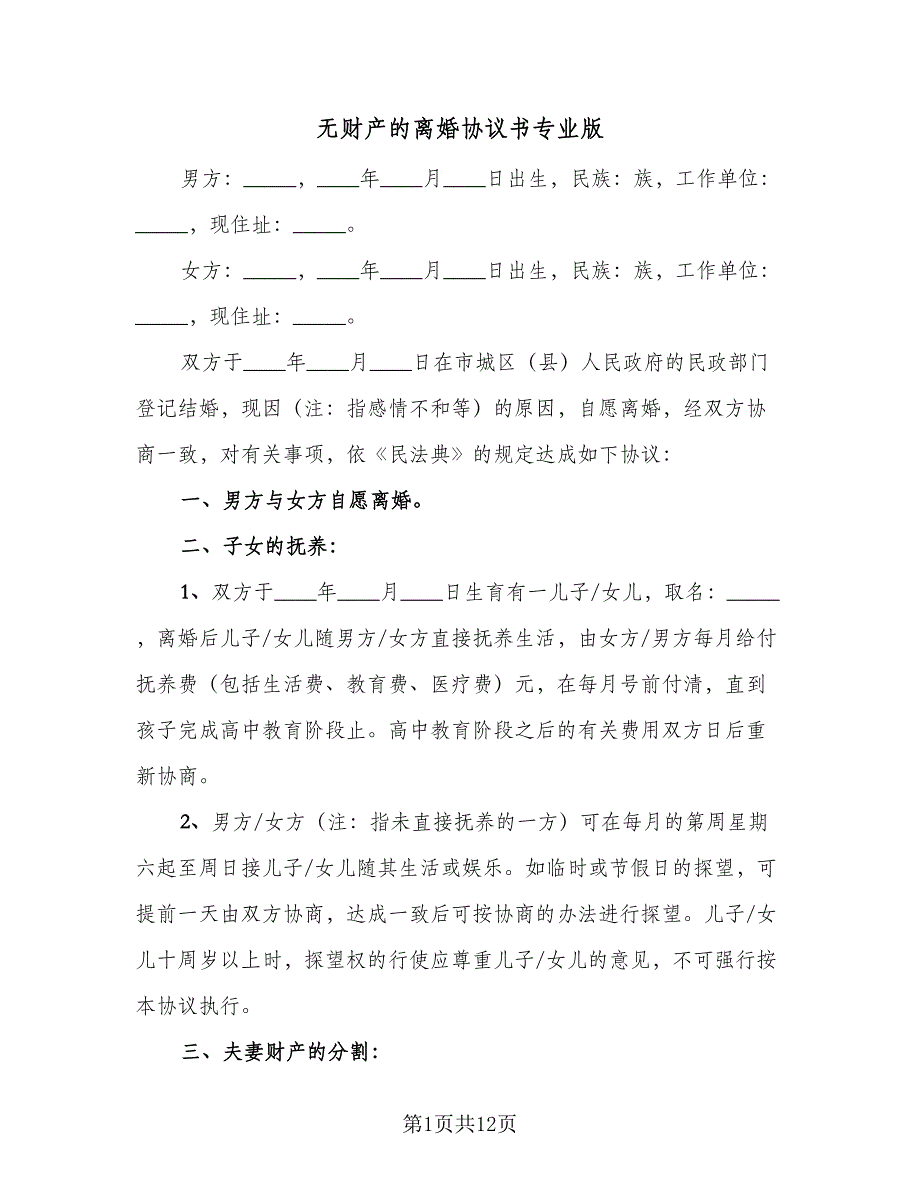 无财产的离婚协议书专业版
男方：_____，____年____月____日出生，民族：族，工作单位：
_____，现住址：_____。
女方：_____，____年____月____日出生，民族：族，工作单位：
_____，现住址：_____。
双方于____年____月____日在市城区（县）人民政府的民政部门
登记结婚，现因（注：指感情不和等）的原因，自愿离婚，经双方协
商一致，对有关事项，依《民法典》的规定达成如下协议：
一、男方与女方自愿离婚。
二、子女的抚养：
1、双方于____年____月____日生育有一儿子/女儿，取名：_____
，离婚后儿子/女儿随男方/女方直接抚养生活，由女方/男方每月给付
抚养费（包括生活费、教育费、医疗费）元，在每月号前付清，直到
孩子完成高中教育阶段止。高中教育阶段之后的有关费用双方日后重
新协商。
2、男方/女方（注：指未直接抚养的一方）可在每月的第周星期
六起至周日接儿子/女儿随其生活或娱乐。如临时或节假日的探望，可
提前一天由双方协商，达成一致后可按协商的办法进行探望。儿子/女
儿十周岁以上时，探望权的行使应尊重儿子/女儿的意见，不可强行按
本协议执行。
三、夫妻财产的分割：
第1页共12页